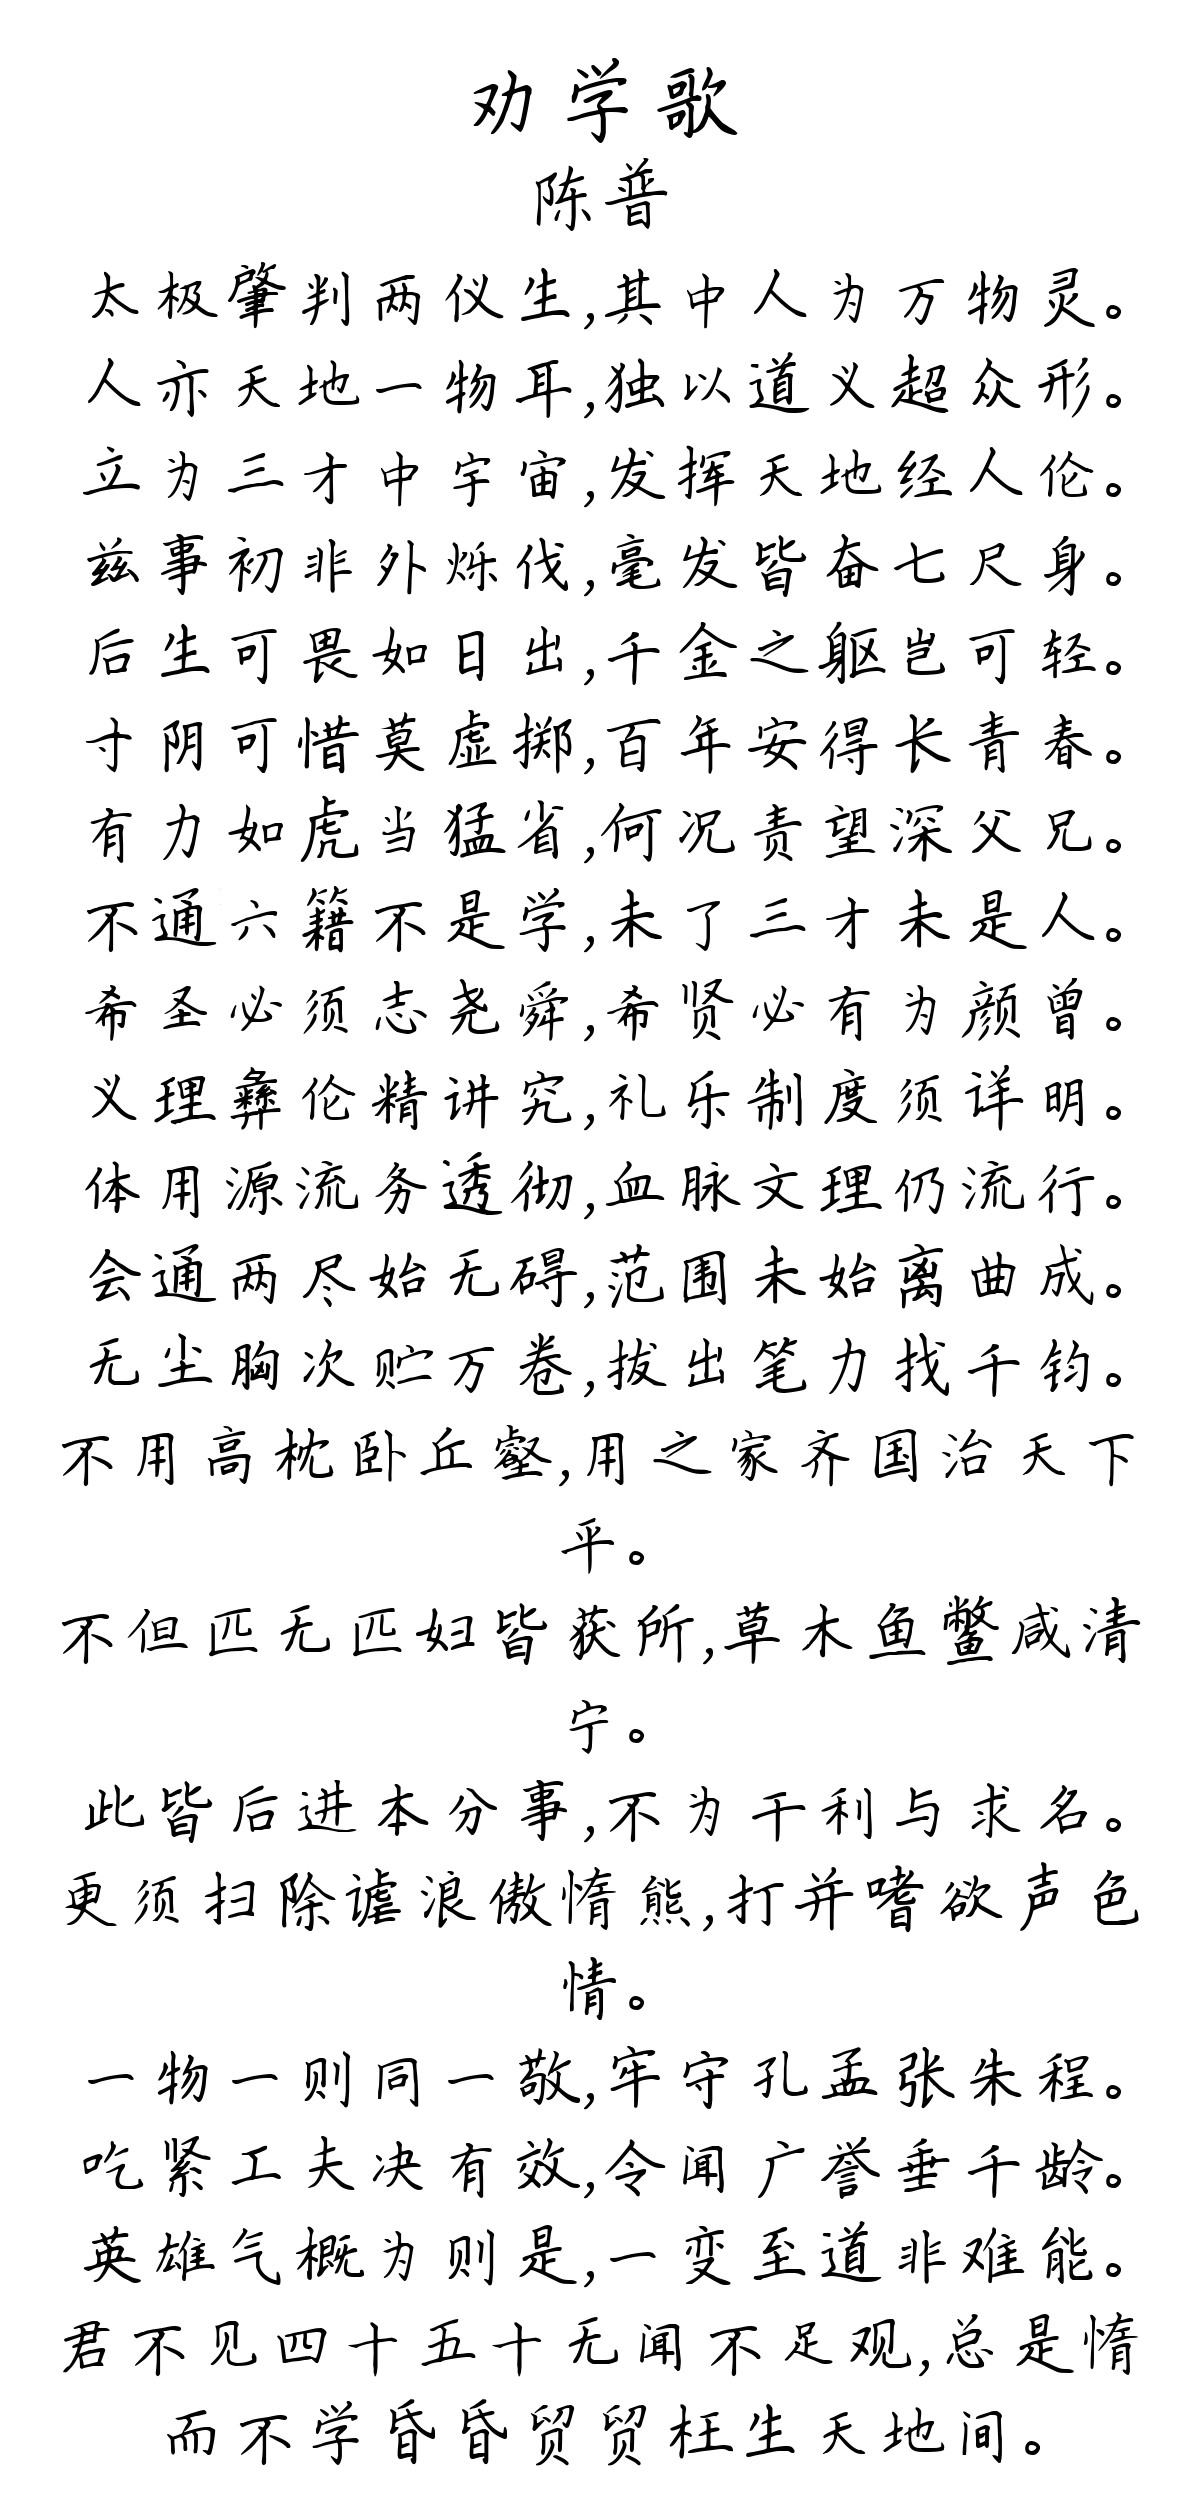 劝学歌
陈普
太极肇判两仪生,其中人为万物灵。
人亦天地一物耳,独以道义超众形。
立为三才中宇宙,发挥天地经人伦。
兹事初非外烁伐,毫发皆奋七尺身。
后生可畏如日出,千金之躯岂可轻。
寸阴可惜莫虚掷,百年安得长青春。
有力如虎当猛省,何况责望深父兄。
不通六籍不是学,未了三才未是人。
希圣必须志尧舜,希贤必有为颜曾。
义理彝伦精讲究,礼乐制度须详明。
体用源流务透彻,血脉文理仍流行。
会通两尽始无碍,范围未始离曲成。
无尘胸次贮万卷,拔出笔力找千钧。
不用高枕卧丘壑,用之家齐国治天下
平。
不但匹无匹妇皆获所,草木鱼鳖咸清
宁。
此皆后进本分事,不为干利与求名。
更须扫除谑浪傲惰熊,打并嗜欲声色
情。
一物一则同一敬,牢守孔孟张朱程。
吃紧工夫决有效,令闻广誉垂千龄。
英雄气概为则是,一变至道非难能。
君不见四十五十无闻不足观,总是惰
而不学昏昏贸贸枉生天地间。